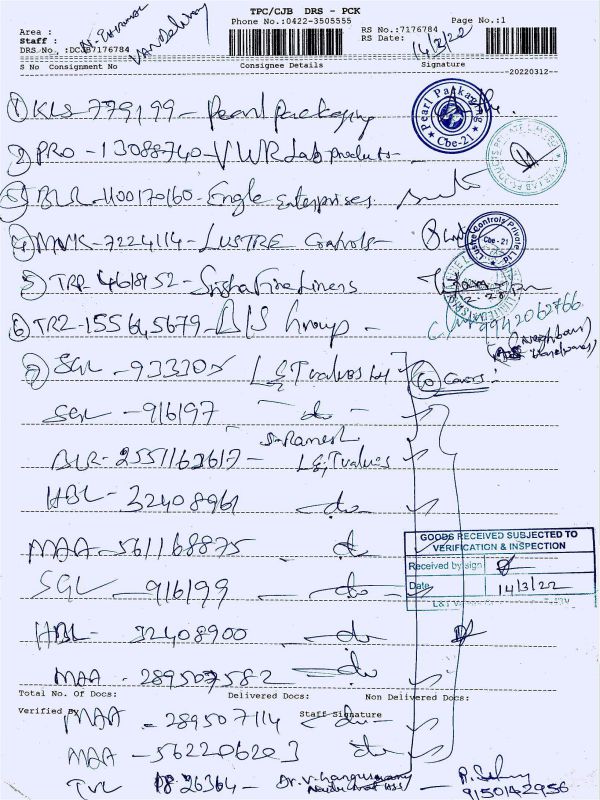 TPC/CJB DRS - PCK
Area :
Phone No.:0422-3505555
Page No.:1
Staff :
RS No.:7176784
RS Date:
14/3/22
DRS No.,:DCJB7176784
S No Consignment No Consignee Details Signature
20220312--
1 KLS-779199- Pearl Packaging
Pearl Packaging Cbe-21
2 PRO - 13088740- VWR Lab products -
3 BLR-1100170160- Engle Enterprises
4 MVK-7224114- LUSTRE Controls-
Lustre Controls Private Ltd Cbe-21
5 TRP 4618952 -
6 TRZ-155645679- Group -
9942062766
7 SGL -933305 L&T valves
Covers:
SGL -916197 - do -
S. Ramesh
BLR-2551163617- L&T valves
HBL- 32408961 - do -
MAA-561168875 do
GOODS RECEIVED SUBJECTED TO
VERIFICATION & INSPECTION
Received by sign
SGL - 916199 - do -
Date 14/3/22
HBL- 32408900 - do -
MAA - 289507582 - do
Total No. Of Docs: Delivered Docs: Non Delivered Docs:
Verified By Staff Signature
MAA - 289507114 - do -
MAA - 562206203 do
TVL 26364- Dr. V.
9150142956